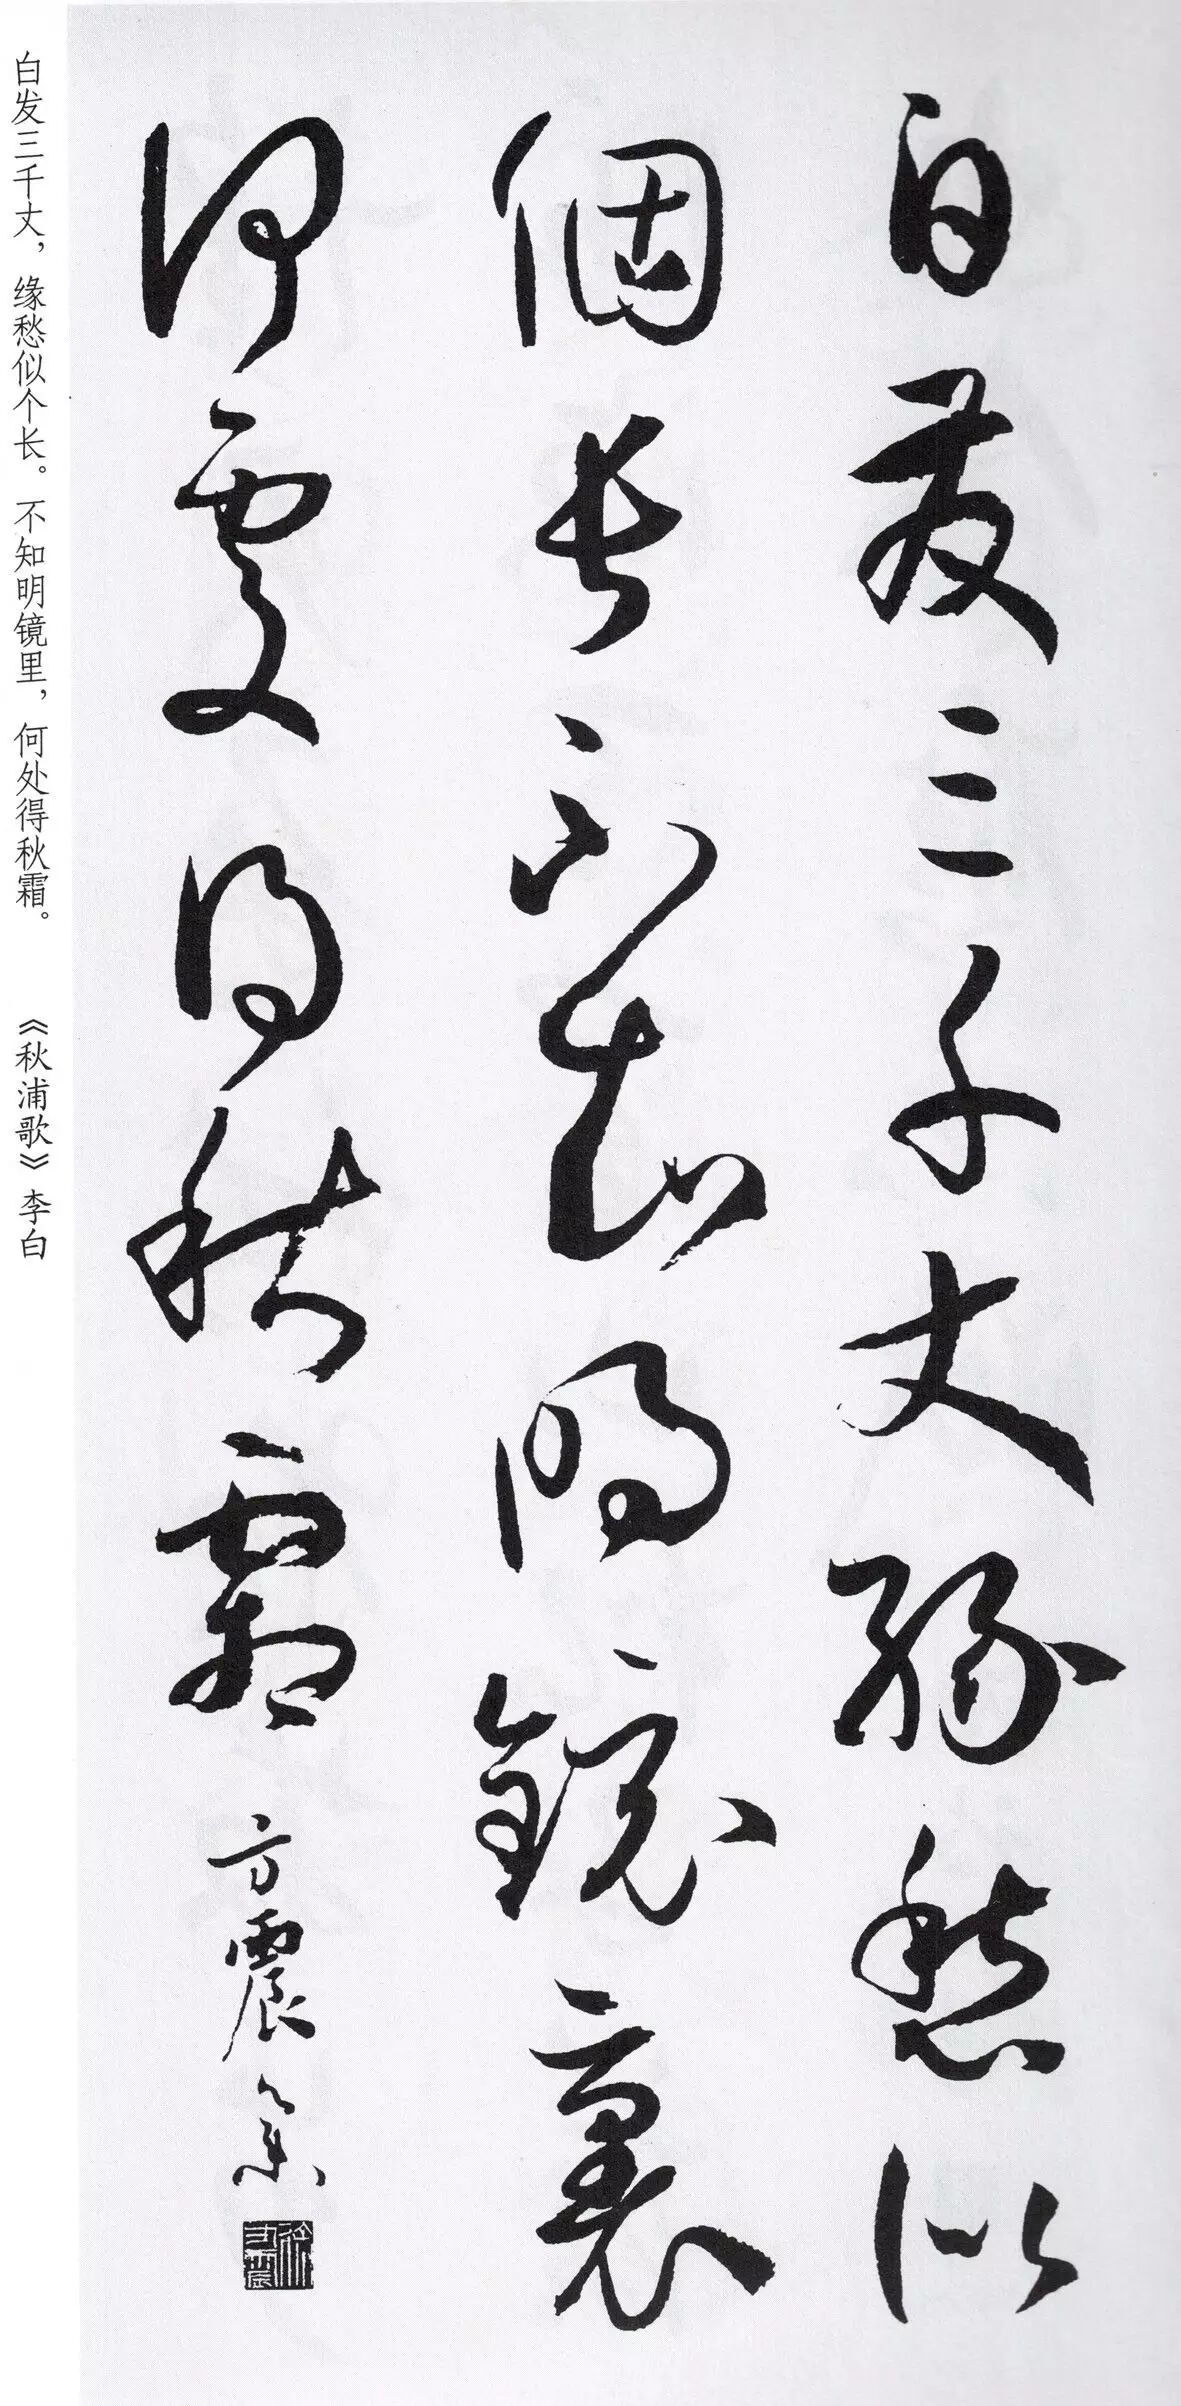 白发三千丈缘愁似
個长不知明镜裏
何处得秋霜
方震篆
白发三千丈，缘愁似个长。不知明镜里，何处得秋霜。 《秋浦歌》李白